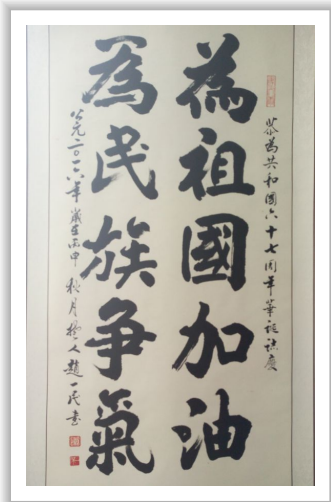 恭為共和國六十七周年華誕誌慶
為祖國加油
為民族争氣
公元二〇一六年歲在丙申秋月
趙一民書